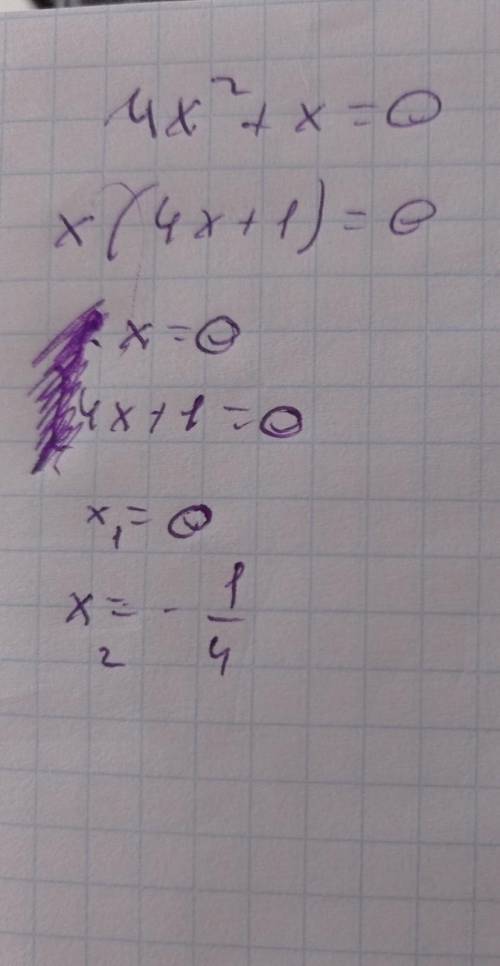 4x² + x = 0
x(4x+1) = 0
x = 0
4x + 1 = 0
x₁ = 0
x₂ = - 1/4